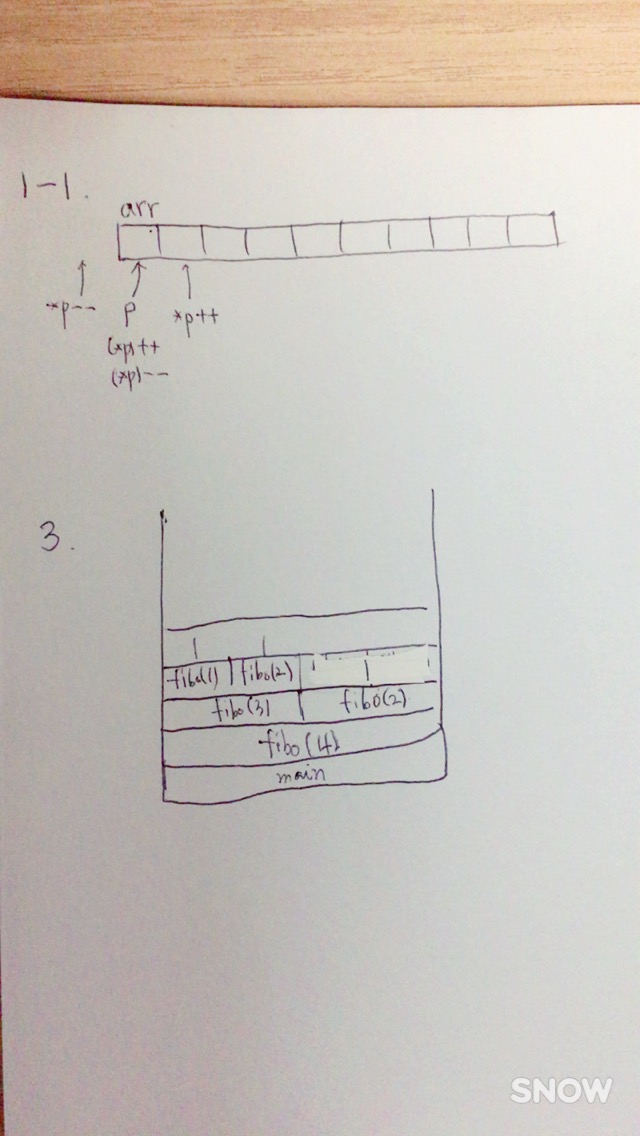 1-1.
arr
*p-- p *p++
(*p)++
(*p)--
3.
1 1
fibo(1) fibo(2) 1
fibo(3) fibo(2)
fibo(4)
main
SNOW